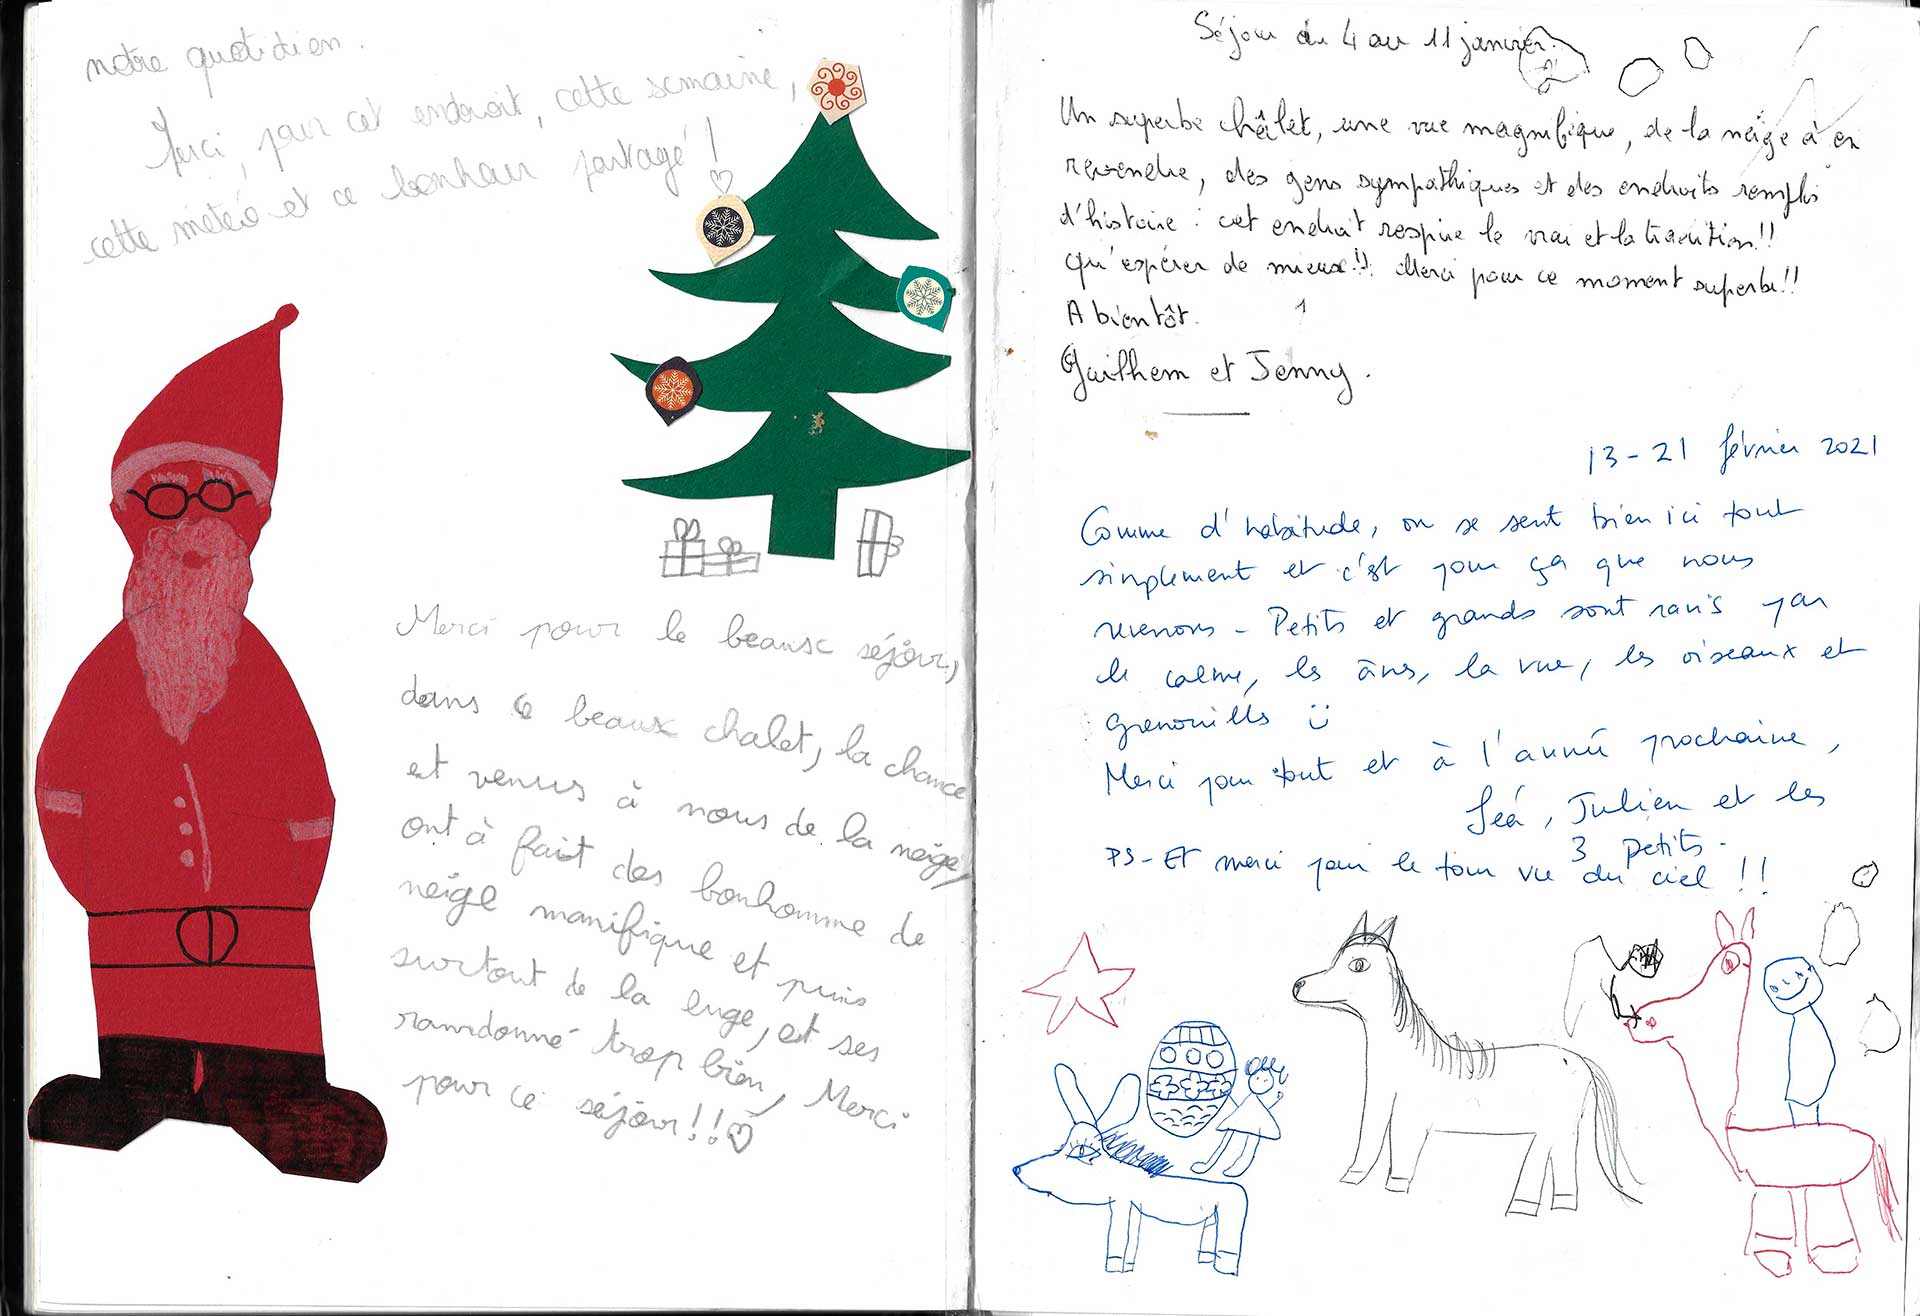 notre quotidien.
Merci, pour cet endroit, cette semaine,
cette météo et ce bonheur partagé !
Merci pour le beausc séjour,
dans ce beaux chalet, la chance
et venus à nous de la neige,
ont à fait des bonhomme de
neige manifique et puis
surtout de la luge, et ses
ramdonné trop bien, Merci
pour ce séjour!!
Séjour du 4 au 11 janvier.
Un superbe châlet, une vue magnifique, de la neige à en
revendre, des gens sympathiques et des endroits remplis
d'histoire : cet endroit respire le vrai et la tradition!!
qu'espérer de mieux!! Merci pour ce moment superbe!!
A bientôt.
Guilhem et Jenny.
13-21 février 2021
Comme d'habitude, on se sent bien ici tout
simplement et c'est pour ça que nous
revenons - Petits et grands sont ravis par
le calme, les ânes, la vue, les oiseaux et
grenouilles
Merci pour tout et à l'année prochaine,
Léa, Julien et les
3 petits.
PS - Et merci pour le tour vu du ciel !!